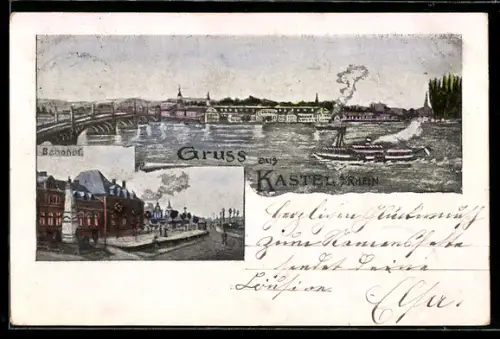 Bahnhof.
Gruss aus
Kastel a/Rhein
Herzlichen Glückwunsch
zum Namensfeste
sendet deine
Cousine